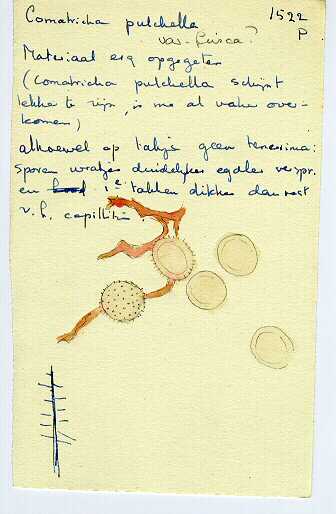 Comatricha pulchella 1522
var. fusca? P
Materiaal erg opgegeten
(Comatricha pulchella schijnt
lekker te zijn, is me al vaker over-
komen)
alhoewel op takje geen tenerrima:
sporen wratjes duidelijker egaler verspr.
en 1e takken dikker dan rest
v.h. capillitium.